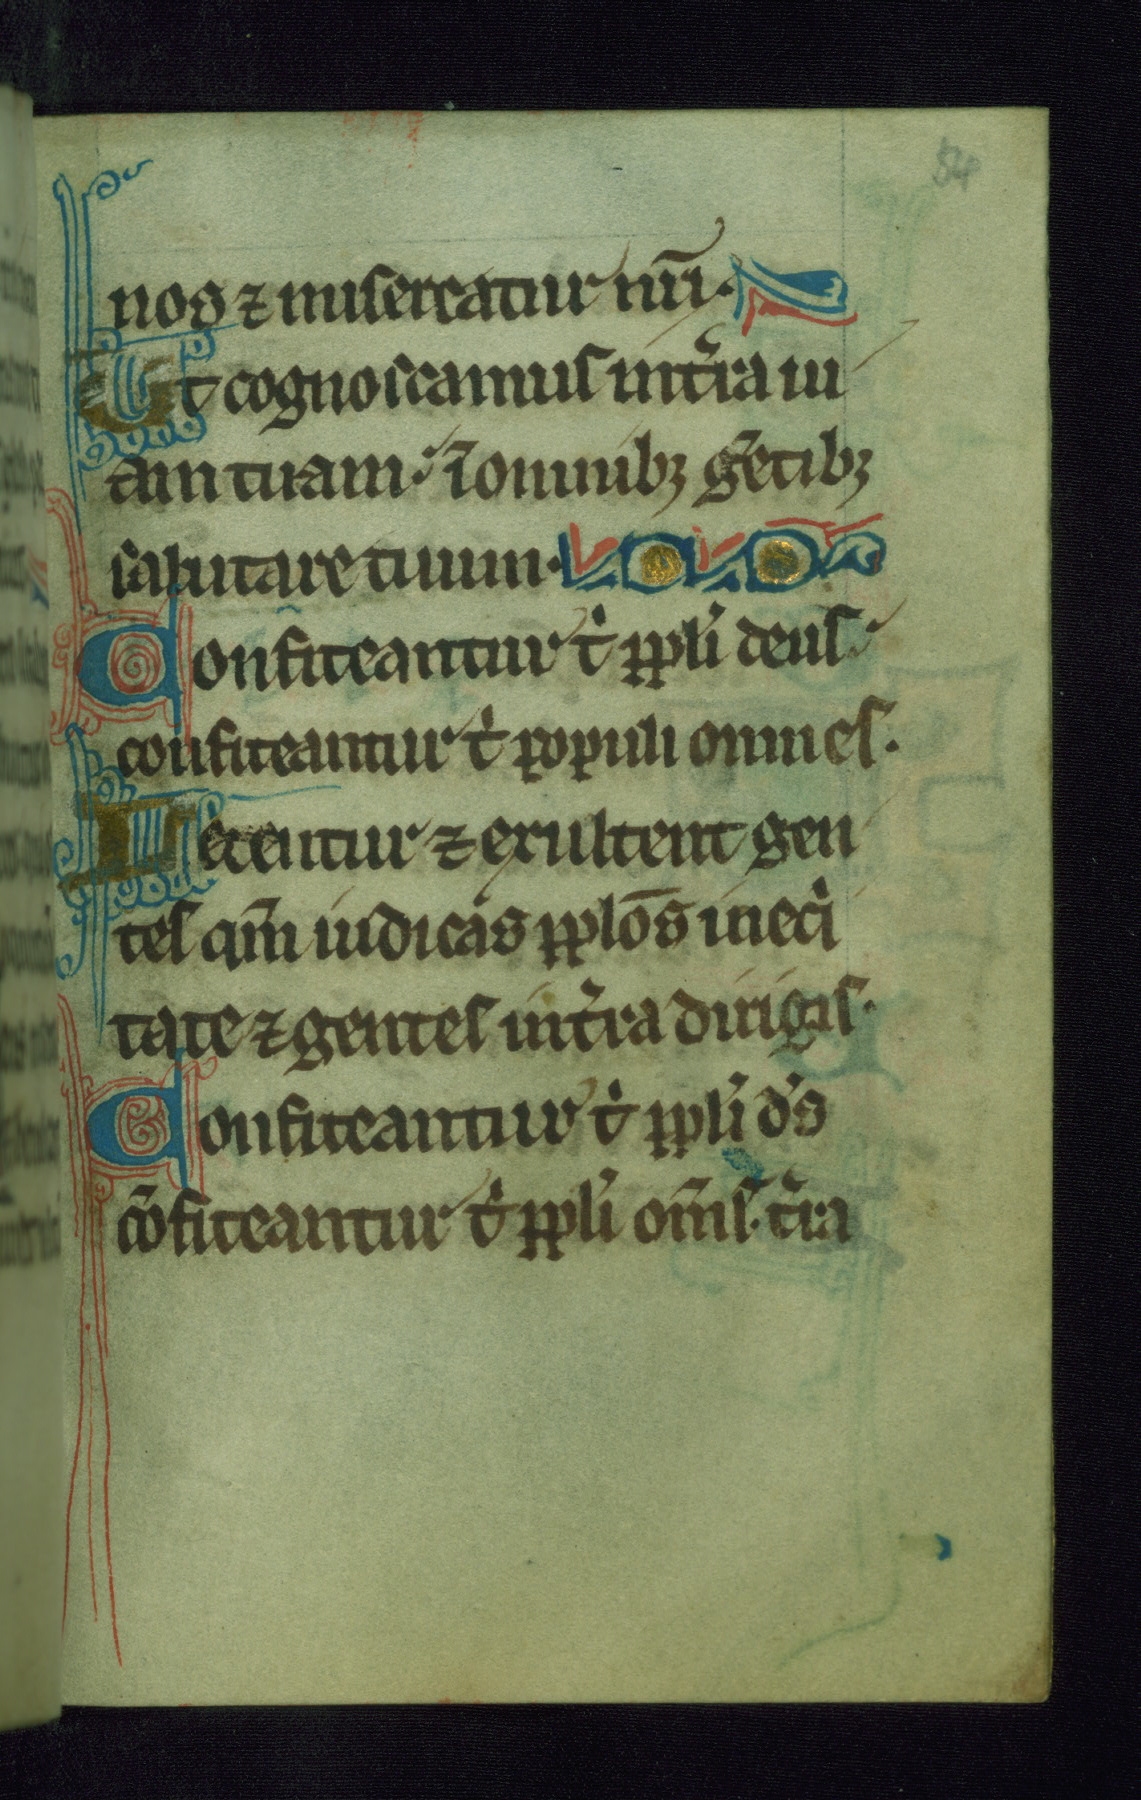 54
nos ⁊ misereatur nr̄i.
Ut cognoscamus int̄ra ui
am tuam. ī omnibꝫ gētibꝫ
salutare tuum.
Confiteantur t̍ pp̄li deus.
confiteantur t̍ populi omnes.
Letentur ⁊ exultent gen
tes qm̄ iudicas pplōs ineq̍
tate ⁊ gentes int̄ra dirigis.
Confiteantur t̍ pp̄li d̄s
cōfiteantur t̍ pp̄li om̄s. t̄ra